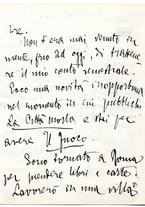 tre.
Non m'era mai venuto in
mente, fino ad oggi, di trattene-
re il mio conto semestrale.
Ecco una novità inopportuna
nel momento in cui pubblico
La Città morta e sto per
avere Il Fuoco.
Sono tornato a Roma
per prendere libri e carte.
Lavorerò in una villa